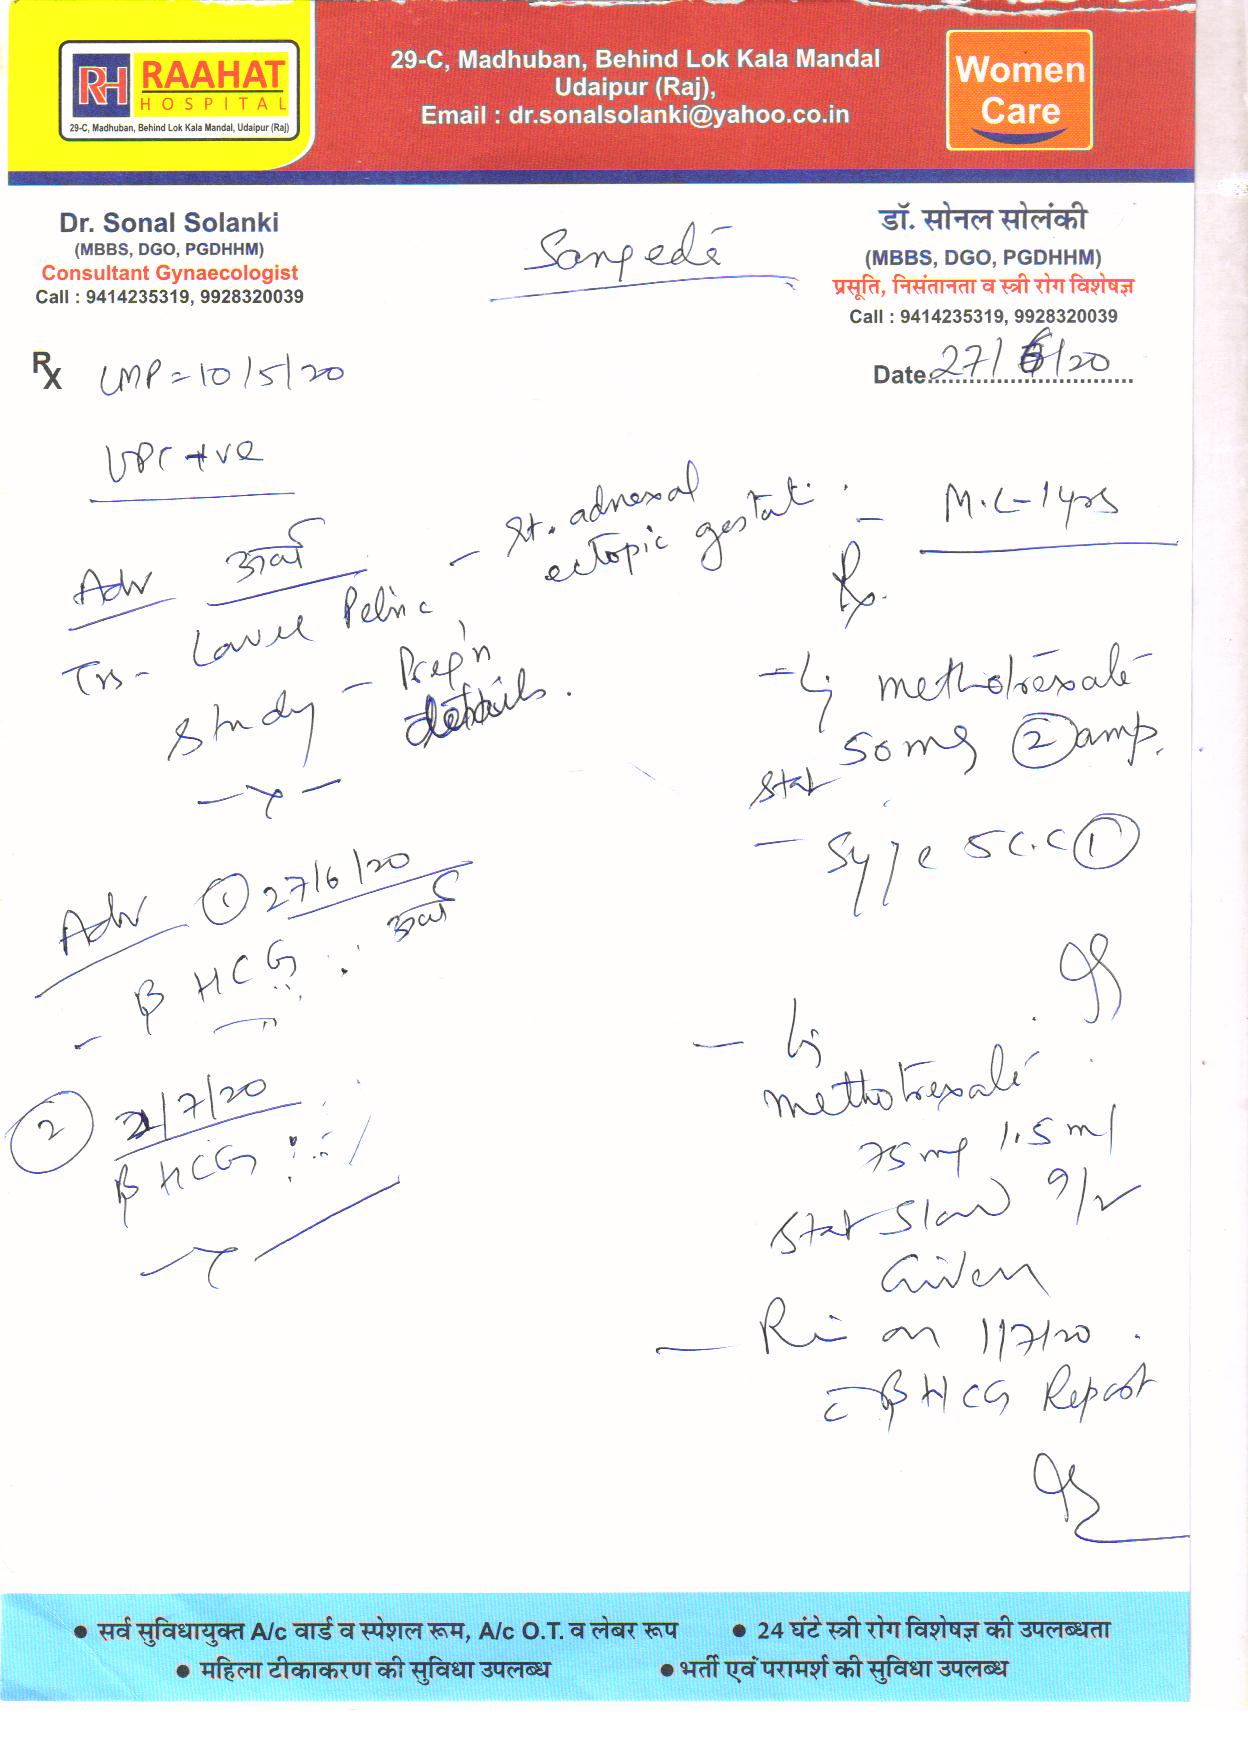 RH RAAHAT
HOSPITAL
29-C, Madhuban, Behind Lok Kala Mandal, Udaipur (Raj)
29-C, Madhuban, Behind Lok Kala Mandal
Udaipur (Raj),
Email : dr.sonalsolanki@yahoo.co.in
Women
Care
Dr. Sonal Solanki
(MBBS, DGO, PGDHHM)
Consultant Gynaecologist
Call : 9414235319, 9928320039
डॉ. सोनल सोलंकी
(MBBS, DGO, PGDHHM)
प्रसूति, निसंतानता व स्त्री रोग विशेषज्ञ
Call : 9414235319, 9928320039
Date 27/6/20
Rx LMP = 10/5/20
UPT +ve
M.L - 1 yrs
Adv
TVS - Lower Pelvic
Study - Preg'n
details.
- Rt. adnexal
ectopic gestati.
Rx.
- Inj methotrexate
50mg (2) amp.
Stat
- Syje 5 c.c (1)
Adv (1) 27/6/20
- β HCG
(2) 1/7/20
β HCG
- Inj
methotrexate
75mg 1.5 ml
Stat Slow I/V
Given
- R on 1/7/20.
c̄ β HCG Report
• सर्व सुविधायुक्त A/c वार्ड व स्पेशल रूम, A/c O.T. व लेबर रूप
• 24 घंटे स्त्री रोग विशेषज्ञ की उपलब्धता
• महिला टीकाकरण की सुविधा उपलब्ध
• भर्ती एवं परामर्श की सुविधा उपलब्ध